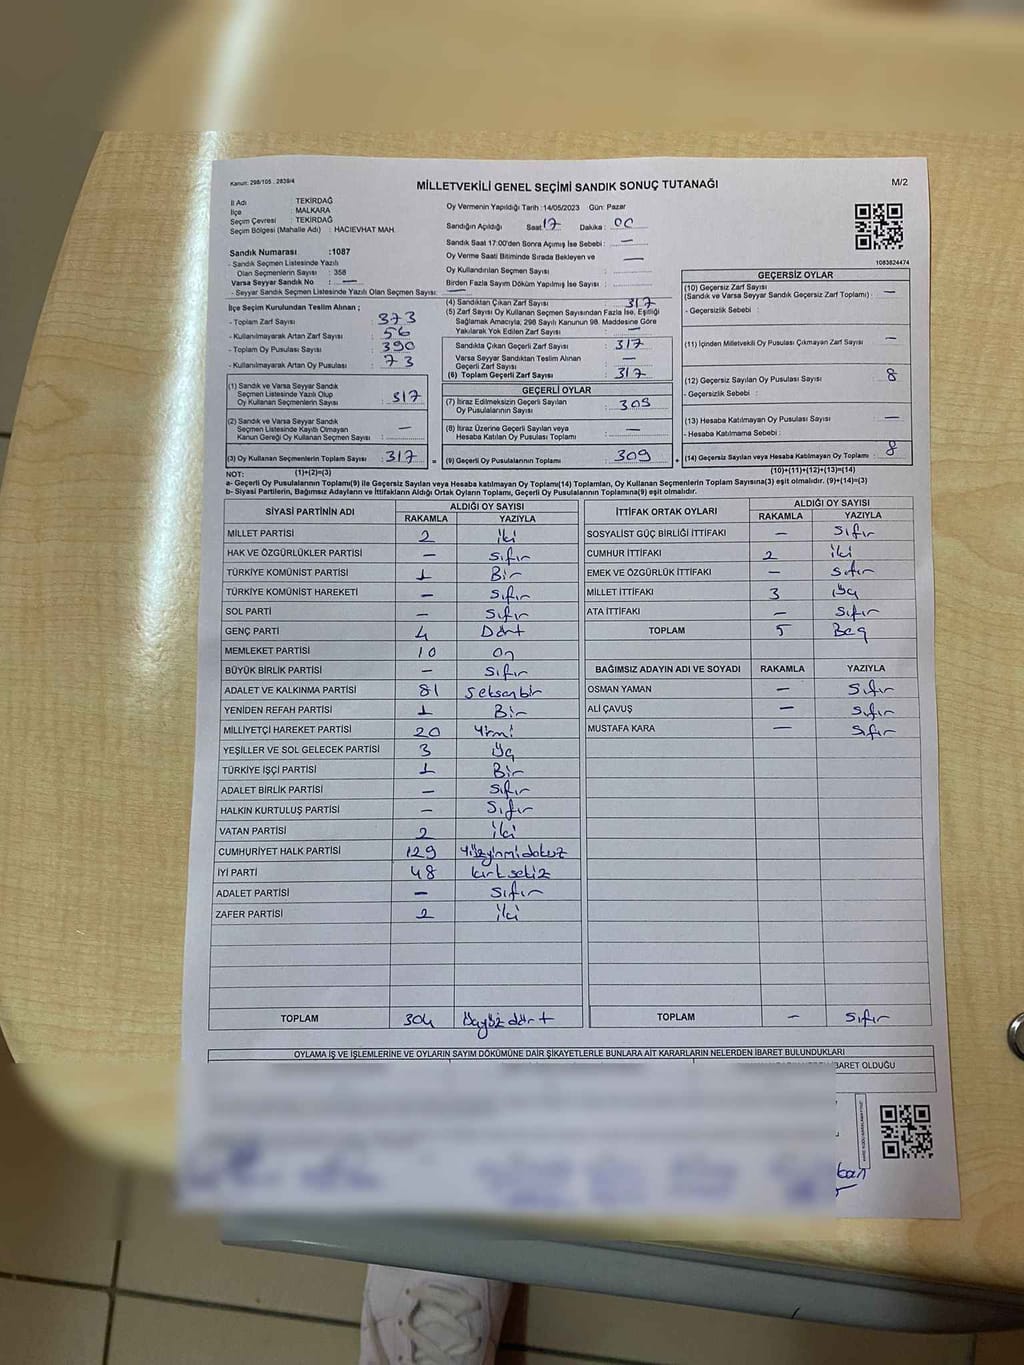 Kanun: 298/105 , 2839/4
MİLLETVEKİLİ GENEL SEÇİMİ SANDIK SONUÇ TUTANAĞI
M/2
İl Adı TEKİRDAĞ
İlçe MALKARA
Seçim Çevresi : TEKİRDAĞ
Seçim Bölgesi (Mahalle Adı) : HACIEVHAT MAH.
Oy Vermenin Yapıldığı Tarih :14/05/2023 Gün: Pazar
Sandığın Açıldığı Saat 17 Dakika : 00
Sandık Saat 17:00'den Sonra Açımış İse Sebebi : —
Oy Verme Saati Bitiminde Sırada Bekleyen ve —
Oy Kullandırılan Seçmen Sayısı :
Birden Fazla Sayım Döküm Yapılmış İse Sayısı :
1083824474
Sandık Numarası :1087
- Sandık Seçmen Listesinde Yazılı
Olan Seçmenlerin Sayısı : 358
Varsa Seyyar Sandık No : —
- Seyyar Sandık Seçmen Listesinde Yazılı Olan Seçmen Sayısı: —
İlçe Seçim Kurulundan Teslim Alınan ;
- Toplam Zarf Sayısı : 373
- Kullanılmayarak Artan Zarf Sayısı : 56
- Toplam Oy Pusulası Sayısı : 390
- Kullanılmayarak Artan Oy Pusulası : 73
(1) Sandık ve Varsa Seyyar Sandık
Seçmen Listesinde Yazılı Olup
Oy Kullanan Seçmenlerin Sayısı : 317
(2) Sandık ve Varsa Seyyar Sandık
Seçmen Listesinde Kayıtlı Olmayan
Kanun Gereği Oy Kullanan Seçmen Sayısı : —
(3) Oy Kullanan Seçmenlerin Toplam Sayısı : 317
(4) Sandıktan Çıkan Zarf Sayısı : 317
(5) Zarf Sayısı Oy Kullanan Seçmen Sayısından Fazla İse, Eşitliği
Sağlamak Amacıyla; 298 Sayılı Kanunun 98. Maddesine Göre
Yakılarak Yok Edilen Zarf Sayısı : —
Sandıkta Çıkan Geçerli Zarf Sayısı : 317
Varsa Seyyar Sandıktan Teslim Alınan
Geçerli Zarf Sayısı : —
(6) Toplam Geçerli Zarf Sayısı : 317
GEÇERLİ OYLAR
(7) İtiraz Edilmeksizin Geçerli Sayılan
Oy Pusulalarının Sayısı : 309
(8) İtiraz Üzerine Geçerli Sayılan veya
Hesaba Katılan Oy Pusulası Toplamı : —
= (9) Geçerli Oy Pusulalarının Toplamı : 309 +
GEÇERSİZ OYLAR
(10) Geçersiz Zarf Sayısı
(Sandık ve Varsa Seyyar Sandık Geçersiz Zarf Toplamı) : —
- Geçersizlik Sebebi :
(11) İçinden Milletvekili Oy Pusulası Çıkmayan Zarf Sayısı : —
(12) Geçersiz Sayılan Oy Pusulası Sayısı : 8
- Geçersizlik Sebebi :
(13) Hesaba Katılmayan Oy Pusulası Sayısı : —
- Hesaba Katılmama Sebebi :
(14) Geçersiz Sayılan veya Hesaba Katılmayan Oy Toplamı : 8
NOT: (1)+(2)=(3) (10)+(11)+(12)+(13)=(14)
a- Geçerli Oy Pusulalarının Toplamı(9) ile Geçersiz Sayılan veya Hesaba katılmayan Oy Toplamı(14) Toplamları, Oy Kullanan Seçmenlerin Toplam Sayısına(3) eşit olmalıdır. (9)+(14)=(3)
b- Siyasi Partilerin, Bağımsız Adayların ve İttifakların Aldığı Ortak Oyların Toplamı, Geçerli Oy Pusulalarının Toplamına(9) eşit olmalıdır.
SİYASİ PARTİNİN ADI ALDIĞI OY SAYISI
RAKAMLA YAZIYLA
MİLLET PARTİSİ 2 iki
HAK VE ÖZGÜRLÜKLER PARTİSİ — sıfır
TÜRKİYE KOMÜNİST PARTİSİ 1 Bir
TÜRKİYE KOMÜNİST HAREKETİ — sıfır
SOL PARTİ — sıfır
GENÇ PARTİ 4 Dört
MEMLEKET PARTİSİ 10 on
BÜYÜK BİRLİK PARTİSİ — sıfır
ADALET VE KALKINMA PARTİSİ 81 seksenbir
YENİDEN REFAH PARTİSİ 1 Bir
MİLLİYETÇİ HAREKET PARTİSİ 20 yirmi
YEŞİLLER VE SOL GELECEK PARTİSİ 3 üç
TÜRKİYE İŞÇİ PARTİSİ 1 Bir
ADALET BİRLİK PARTİSİ — sıfır
HALKIN KURTULUŞ PARTİSİ — sıfır
VATAN PARTİSİ 2 iki
CUMHURİYET HALK PARTİSİ 129 yüzyirmidokuz
İYİ PARTİ 48 kırksekiz
ADALET PARTİSİ — sıfır
ZAFER PARTİSİ 2 iki
TOPLAM 304 üçyüzdört
İTTİFAK ORTAK OYLARI ALDIĞI OY SAYISI
RAKAMLA YAZIYLA
SOSYALİST GÜÇ BİRLİĞİ İTTİFAKI — sıfır
CUMHUR İTTİFAKI 2 iki
EMEK VE ÖZGÜRLÜK İTTİFAKI — sıfır
MİLLET İTTİFAKI 3 üç
ATA İTTİFAKI — sıfır
TOPLAM 5 Beş
BAĞIMSIZ ADAYIN ADI VE SOYADI RAKAMLA YAZIYLA
OSMAN YAMAN — sıfır
ALİ ÇAVUŞ — sıfır
MUSTAFA KARA — sıfır
TOPLAM — sıfır
OYLAMA İŞ VE İŞLEMLERİNE VE OYLARIN SAYIM DÖKÜMÜNE DAİR ŞİKAYETLERLE BUNLARA AİT KARARLARIN NELERDEN İBARET BULUNDUKLARI
İBARET OLDUĞU
ban